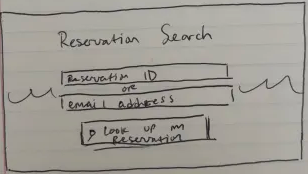 Reservation Search
Reservation ID
or
email address
Look up my
Reservation